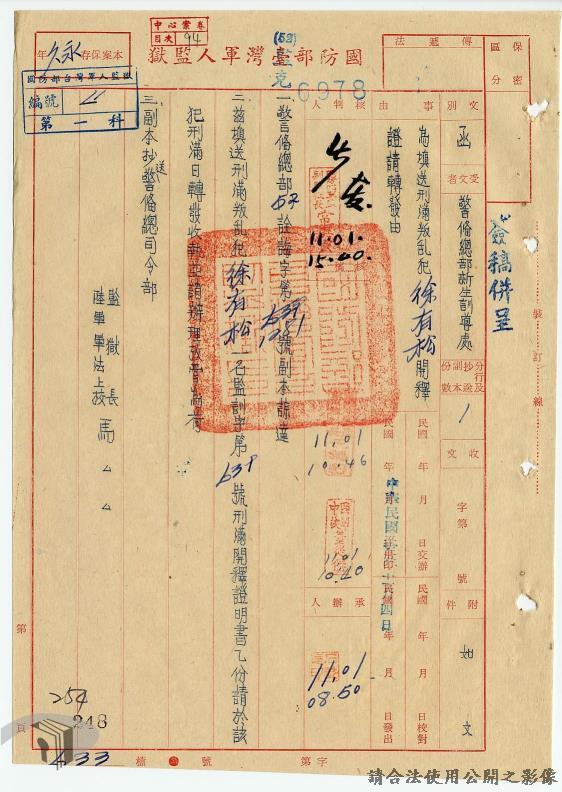 國防部臺灣軍人監獄
傳遞法
保密區分
中心案卷
目次 94
本案保存 永久 年
國防部台灣軍人監獄
編號
第一科
(52)
6978
文別 函
受文者 警備總部新生訓導處
簽稿併呈
事由
為填送刑滿叛乱犯徐有松開釋
證請轉發由
核判人
11.01.
15.40.
分行及抄送副本份數 1
收文 字第 號
附件 如文
民國 年 月 日交辦
民國 年 月 日校對
民國 年 月 日封發
承辦人
11.01
10.46
11.01
10.40
11.01
08.50
一警備總部 52 詮誨字第 號副本諒達
二、茲填送刑滿叛乱犯徐有松一名監訓字第 639 號刑滿開釋證明書乙份請於該
犯刑滿日轉發收執
三、副本抄送警備總司令部
監獄長
陸軍軍法上校 馬ㄙㄙ
裝訂線
第 頁
254
248
633
檔號
字第
請合法使用公開之影像